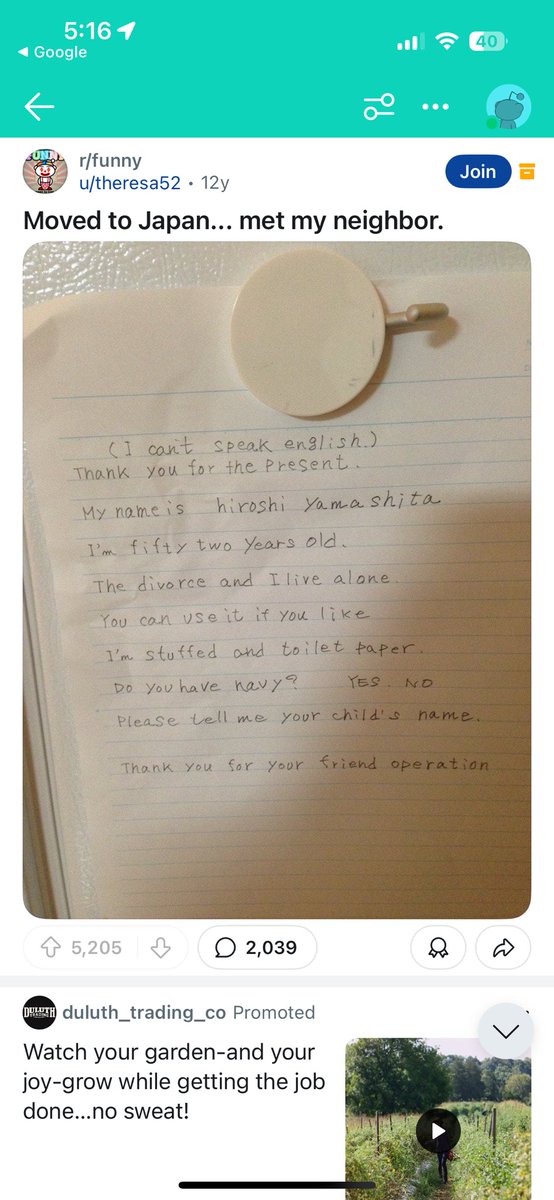 5:16
Google
40
r/funny
u/theresa52 • 12y
Join
Moved to Japan... met my neighbor.
(I can't speak english.)
Thank you for the Present.
My name is hiroshi Yamashita
I'm fifty two years old.
The divorce and I live alone.
You can use it if you like
I'm stuffed and toilet paper.
Do you have navy? YES. NO
Please tell me your child's name.
Thank you for your friend operation
5,205
2,039
DULUTH
TRADING CO
duluth_trading_co Promoted
Watch your garden-and your
joy-grow while getting the job
done...no sweat!